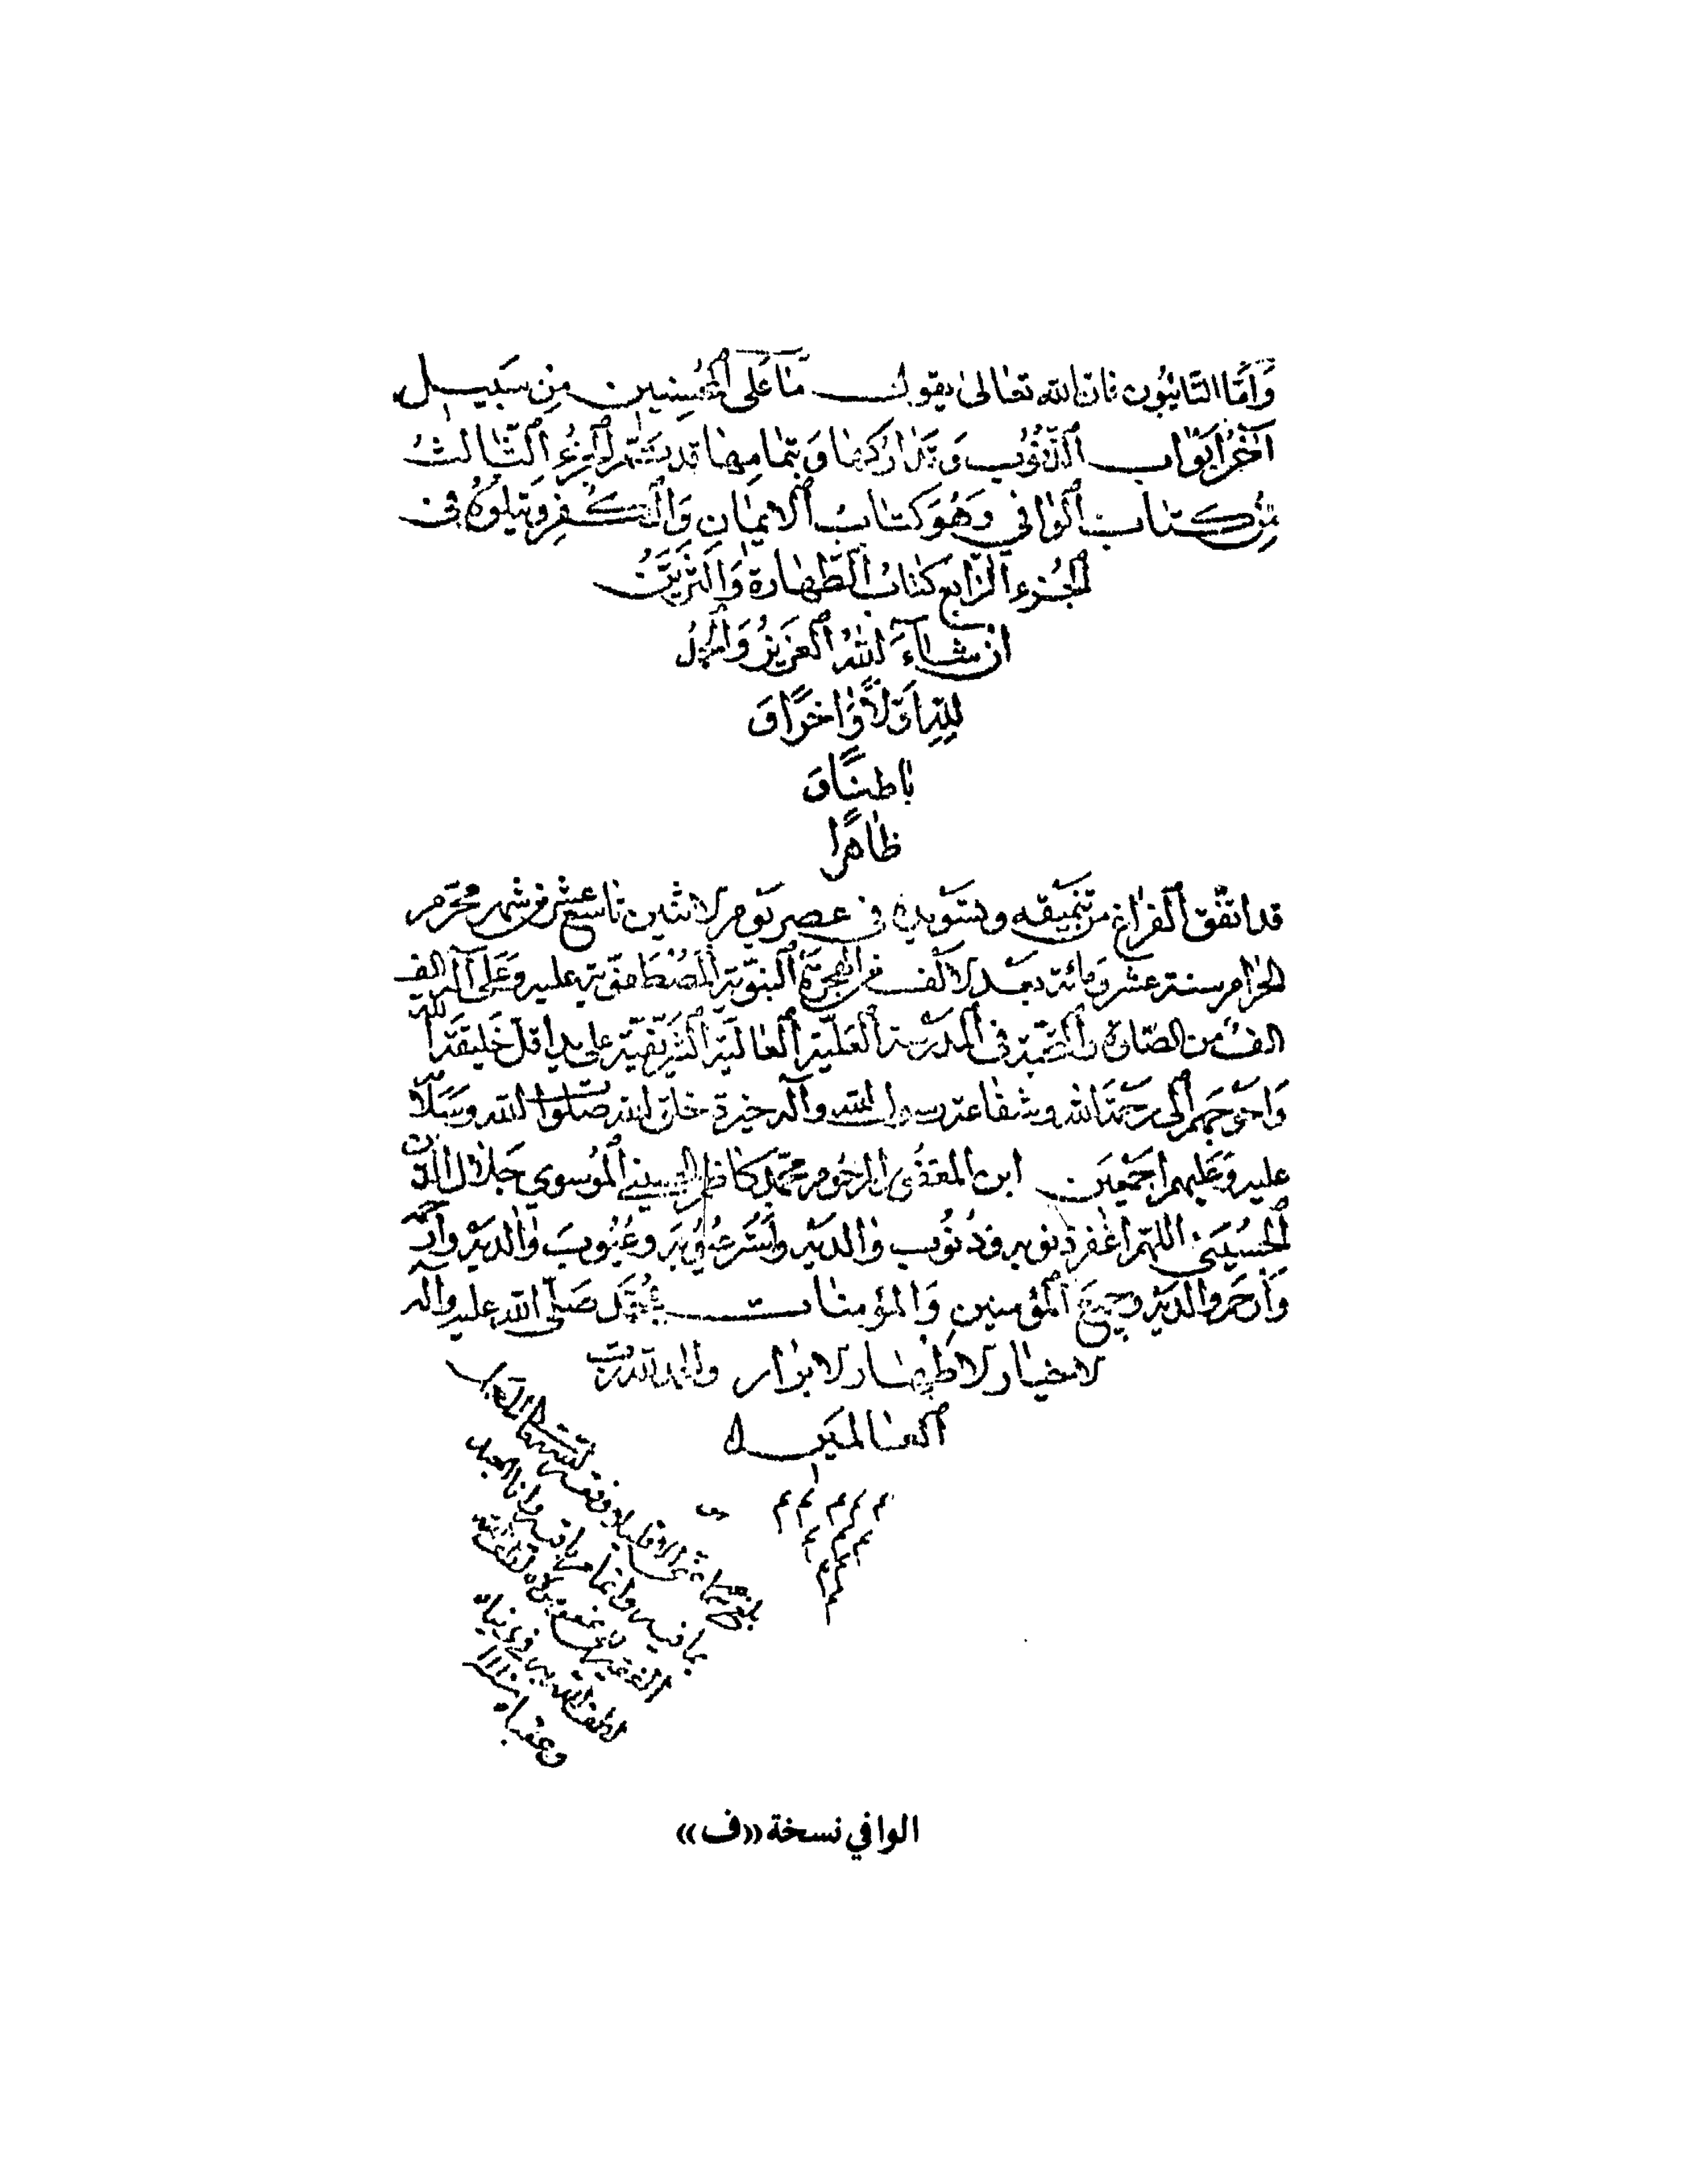 وَاَمَّا التَّائِبُون فان الله تعالىٰ يقول مَا عَلى المُحسِنين مِن سَبيل
آخر اَبوَاب الذُّنُوب وَ تَدَارُكها وَ بتمَامِها قد تَمَّ الجُزءُ الثَّالثُ
مِن كتاب الوافي وَهُوَ كتابُ الايمان وَالكفرِ وَيتلوهُ فى
الجُزءِ الرَّابع كتابُ الطَّهارة وَالتَّزَيُّن
اِن شآءَ اللهُ العَزيزُ وَالحمدُ
لِلّهِ اَوّلاً وَّاٰخرًا وَ
بٰاطنًا وَ
ظٰاهرًا
قد اتّفق الفراغ من تنميقه وتسويده فى عصر يَوم الاثنين تاسع عشر من شهر محرّم
الحرام سنة عشر ومائة بعد الالف من الهجرَة النبَويّة المُصطفويّة عليه وَعَلى آله الف
الف من الصّلوة والتحيّة فى المدرسة العَليّة العالية الشريفيّة على يد اقلّ خَليقة الله
وَاَحوَجهم الى رَحمة الله وشفاعة رسول الله وآله خيرة خلق الله صَلوات الله وسَلامه
عليه وَعَليهم اجمَعين ابن المرحُوم محمّد كاظم الحسيني المُوسوي جَلال الدّين
الحُسيني اللهم اغفر ذنوبه وذنُوب والديه واستر عيُوبه وعُيُوب والديه وارحمه
وَارحَم والديه وجميعَ المؤمنين وَالمؤمنات بمُحمّد صَلّى الله عليه وآله
الاخيار الاطهار الابرار والحمد لله ربّ
العالمين
الوافي نسخة «ف»